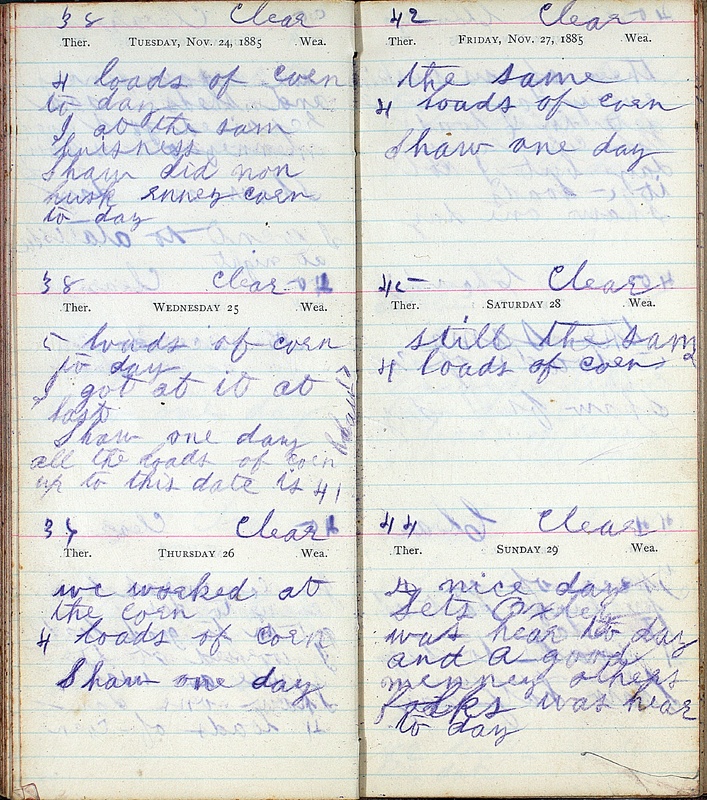 38 Clear
Ther. TUESDAY, NOV. 24, 1885 Wea.
4 loads of corn
to day
I at the sam
buisness
Shaw did non
husk enney corn
to day
38 Clear
Ther. WEDNESDAY 25 Wea.
5 loads of corn
to day
I got at it at
last
Shaw one day
all the loads of corn
up to this date is 41
Clear
Ther. THURSDAY 26 Wea.
we worked at
the corn
4 loads of corn
Shaw one day
42 Clear
Ther. FRIDAY, NOV. 27, 1885 Wea.
the same
4 loads of corn
Shaw one day
45 Clear
Ther. SATURDAY 28 Wea.
still the sam
4 loads of corn
44 Clear
Ther. SUNDAY 29 Wea.
A nice day
was hear to day
and a good
menney others
folks was hear
to day